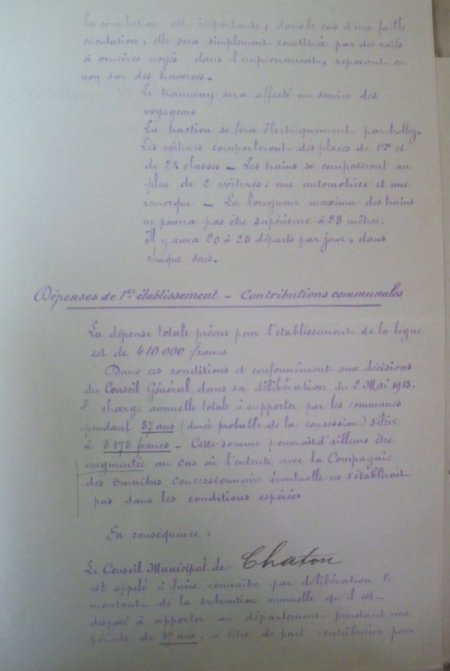 la circulation est importante ; dans le cas d'une faible
circulation, elle sera simplement constituée par des rails
à ornières noyés dans l'empierrement, reposant ou
non sur des traverses.
Le tramway sera affecté au service des
voyageurs
La traction se fera électriquement par trolley.
Les voitures comporteront des places de 1ère et
de 2e classes _ Les trains se composeront au
plus de 2 voitures : une automotrice et une
remorque _ La longueur maxima des trains
ne pourra pas être supérieure à 23 mètres.
Il y aura 20 à 25 départs par jour, dans
chaque sens.
Dépenses de 1er établissement _ Contributions communales
La dépense totale prévue pour l'établissement de la ligne
est de 410 000 francs
Dans ces conditions et conformément aux décisions
du Conseil Général dans sa délibération du 2 Mai 1913.
charge annuelle totale à supporter par les communes
pendant 37 ans (durée probable de la concession) s'élève
à 5 175 francs _ Cette somme pourrait d'ailleurs être
augmentée au cas où l'entente avec la Compagnie
des Omnibus concessionnaire éventuelle ne s'établirait
pas dans les conditions espérées
En conséquence :
Le Conseil Municipal de Chatou
est appelé à faire connaître par délibération le
montant de la subvention annuelle qu'il est
disposé à apporter au département pendant une
période de 37 ans, à titre de part contributive pour